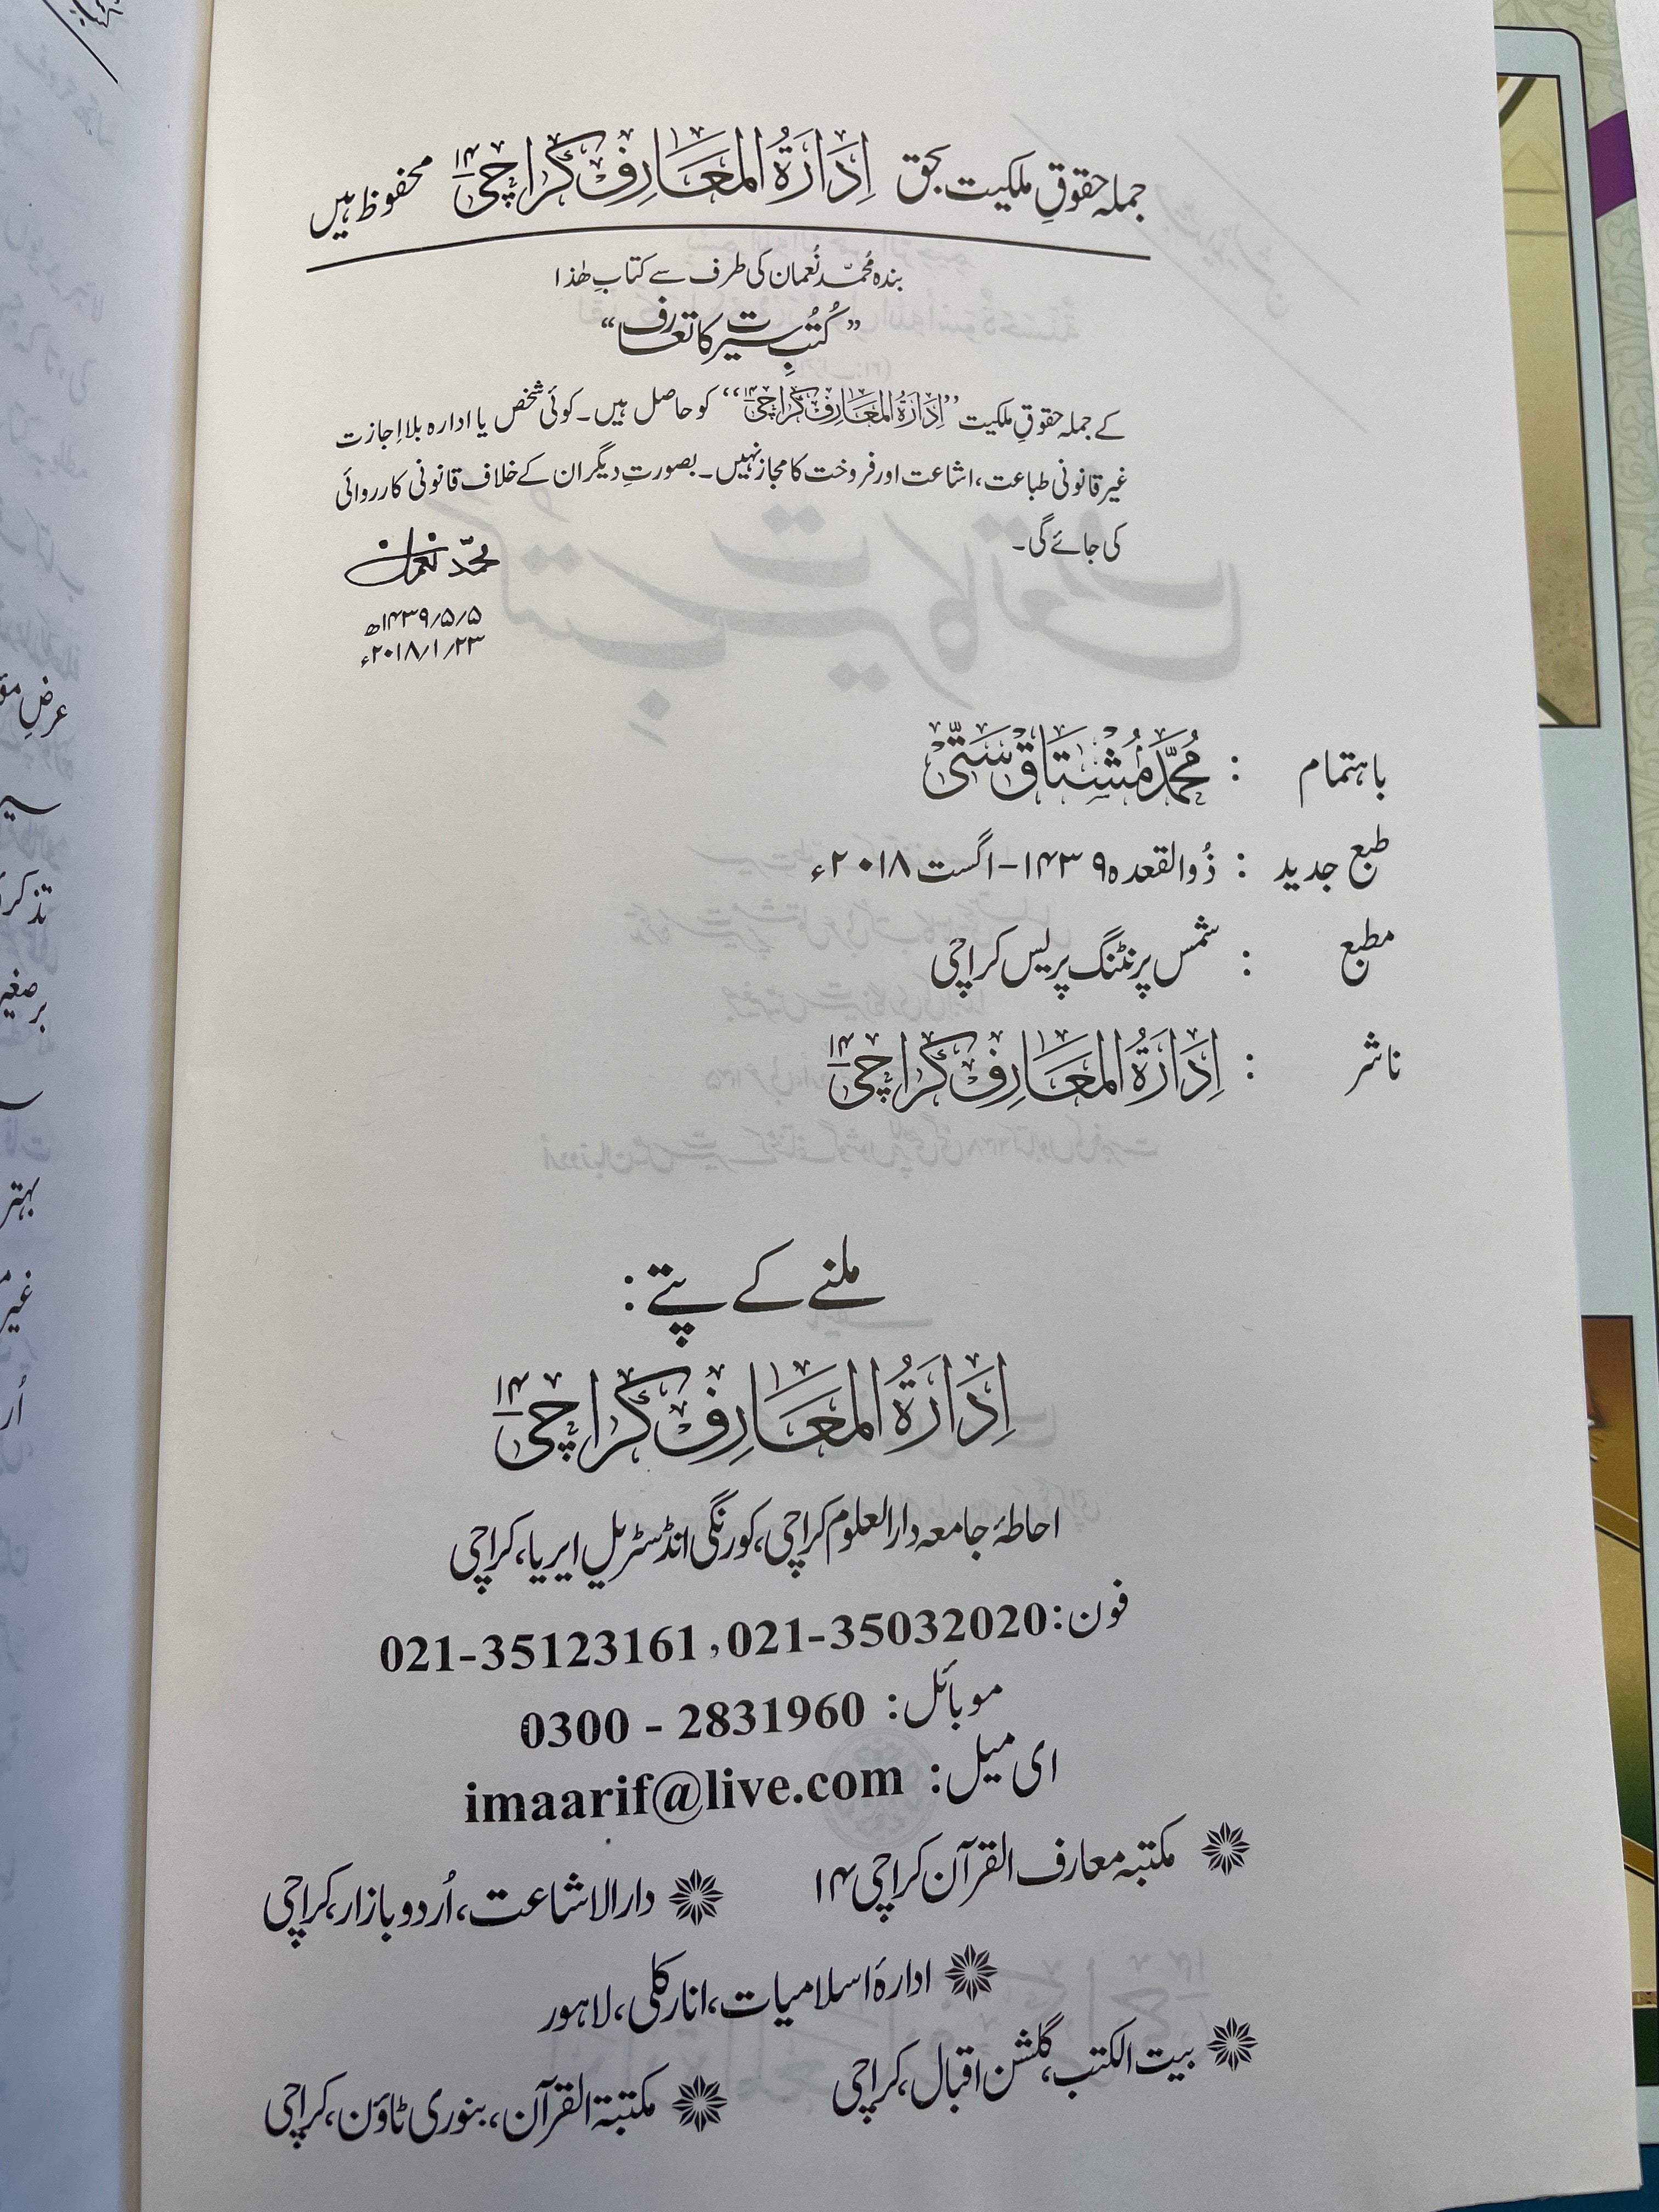 جملہ حقوقِ ملکیت بحق اِدَارَۃُ المَعَارِف کراچی ۱۴ محفوظ ہیں
بندہ مُحمّد نُعمان کی طرف سے کتابِ ھٰذا
”کُتبِ سیرت کا تعارف“
کے جملہ حقوقِ ملکیت ”اِدَارَۃُ المَعَارِف کراچی ۱۴“ کو حاصل ہیں۔ کوئی شخص یا ادارہ بلا اِجازت
غیر قانونی طباعت، اشاعت اور فروخت کا مجاز نہیں۔ بصورتِ دیگر ان کے خلاف قانونی کارروائی
کی جائے گی۔
محمّد نعمان
۱۴۳۹/۵/۵ھ
۲۰۱۸/۱/۲۳ء
باہتمام : مُحَمَّد مُشتَاق سَتّی
طبع جدید : ذُوالقعدہ ۱۴۳۹ھ - اگست ۲۰۱۸ء
مطبع : شمس پرنٹنگ پریس کراچی
ناشر : اِدَارَۃُ المَعَارِف کراچی ۱۴
ملنے کے پتے:
اِدَارَۃُ المَعَارِف کراچی ۱۴
احاطۂ جامعہ دارالعلوم کراچی، کورنگی انڈسٹریل ایریا، کراچی
فون: 021-35032020 , 021-35123161
موبائل: 0300 - 2831960
ای میل: imaarif@live.com
مکتبہ معارف القرآن کراچی ۱۴
دارالاشاعت، اُردو بازار، کراچی
ادارۂ اسلامیات، انارکلی، لاہور
بیت الکتب، گلشن اقبال، کراچی
مکتبۃ القرآن، بنوری ٹاؤن، کراچی